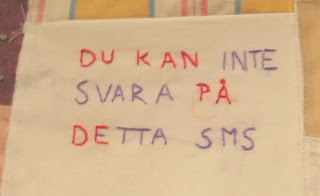 DU KAN INTE
SVARA PÅ
DETTA SMS